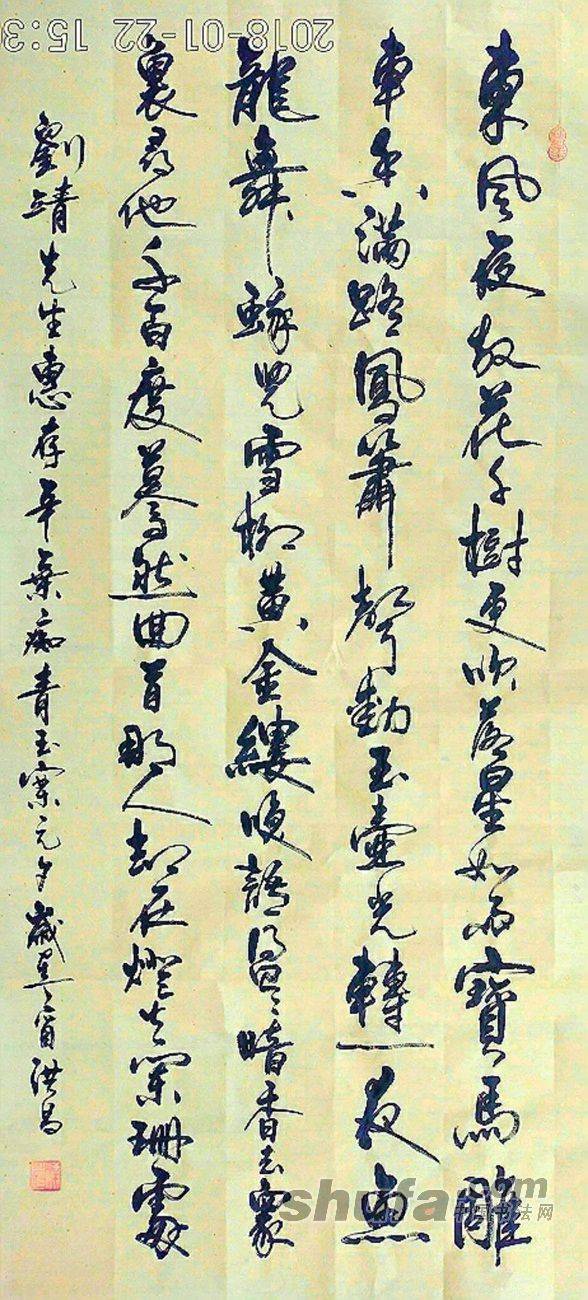 東風夜放花千樹更吹落星如雨寶馬雕
車香滿路鳳簫聲動玉壺光轉一夜魚
龍舞蛾兒雪柳黃金縷笑語盈盈暗香去眾
裏尋他千百度驀然回首那人却在燈火闌珊處
劉靖先生惠存辛棄疾青玉案元夕歲洪昌
2018-01-22 15:3
shufa.com
中国书法网